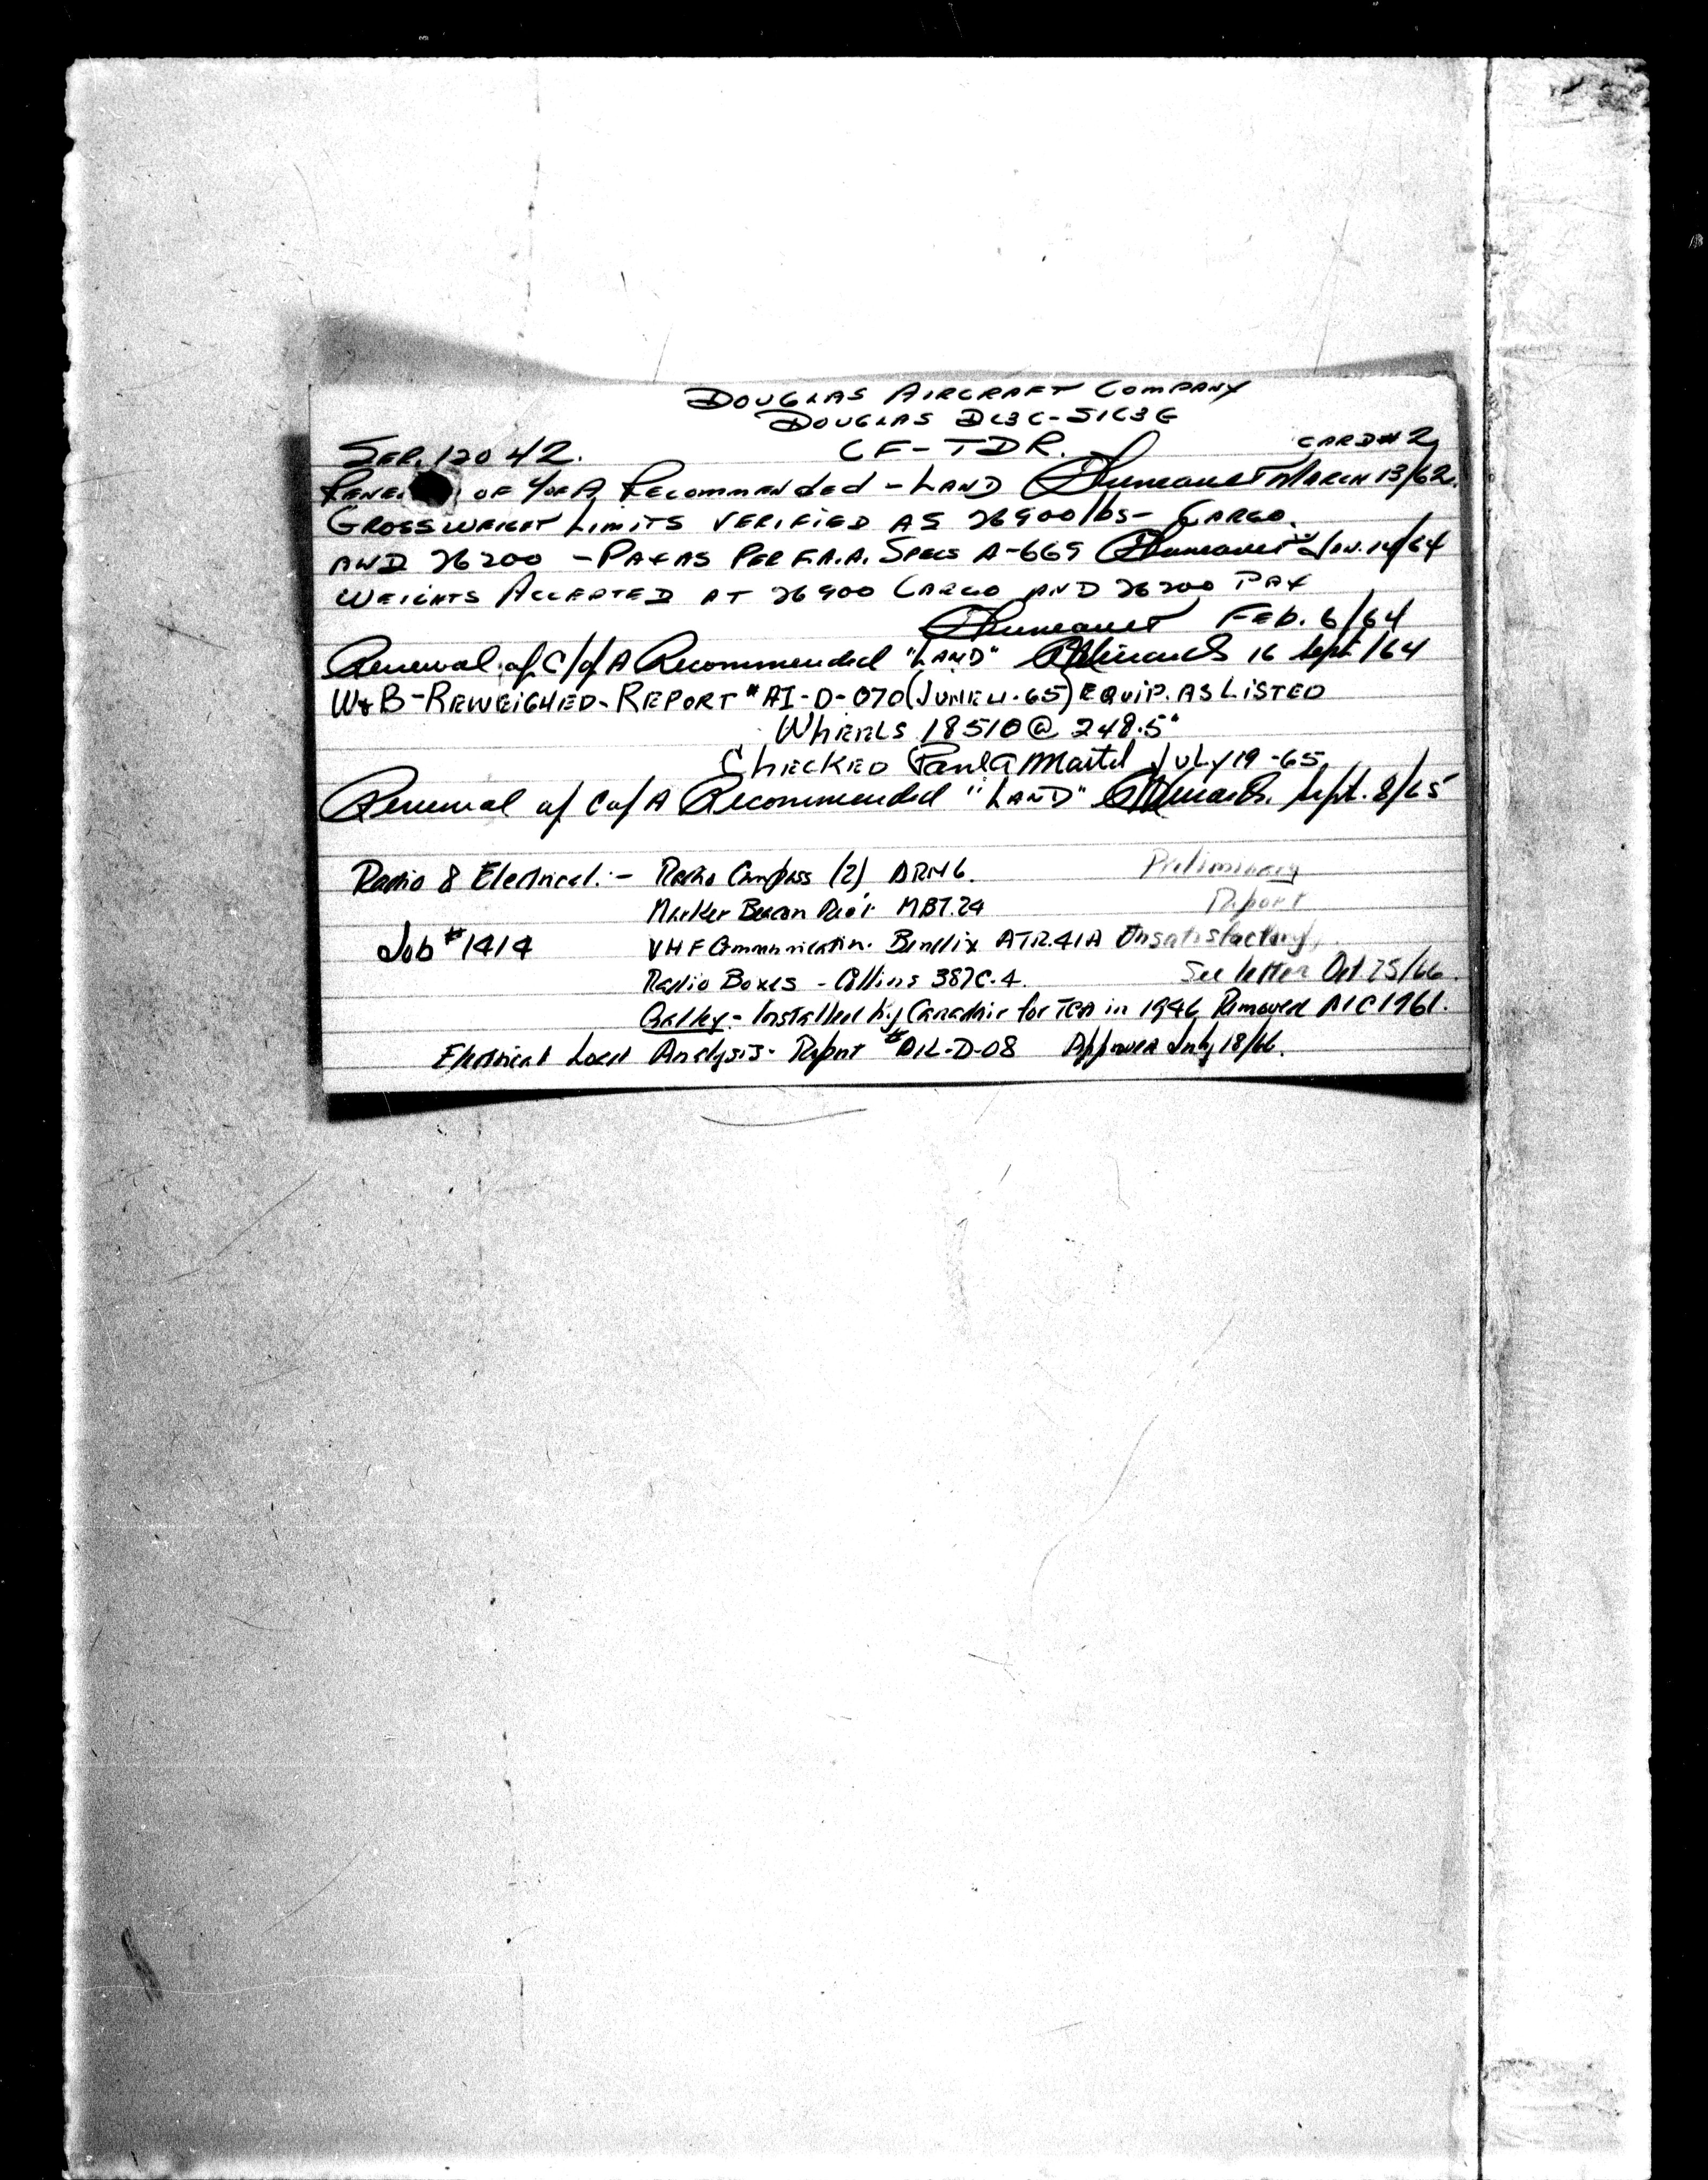 DOUGLAS AIRCRAFT COMPANY
DOUGLAS DC3C-S1C3G
SER. 12042. CF-TDR. CARD#2
OF C of A Recommended - LAND MARCH 13/62.
GROSS WEIGHT LIMITS VERIFIED AS 26900 lbs - CARGO.
AND 26200 - PAX AS PER F.A.A. SPECS A-669 JAN. 14/64
WEIGHTS ACCEPTED AT 26900 CARGO AND 26200 PAX
FEB. 6/64
Renewal of C/of A Recommended "LAND" 16 Sept/64
W&B-REWEIGHED-REPORT #AI-D-070 (JUNE 21-65) EQUIP. AS LISTED
WHEELS 18510 @ 248.5"
CHECKED Paul A Martel JULY 19-65
Renewal of C of A Recommended "LAND" Sept. 8/65
Radio & Electrical:- Radio Compass (2) ARN6. Preliminary
Marker Beacon Rec'r MBT.24 Report
Job #1414 VHF Communication. Bendix ATR.41A Unsatisfactory,
Radio Boxes - Collins 387C.4. See letter Oct. 25/66.
Galley - Installed by Canadair for TCA in 1946 Removed AIC 1961.
Electrical Load Analysis. Report # AIL-D-08 Approved July 18/66.